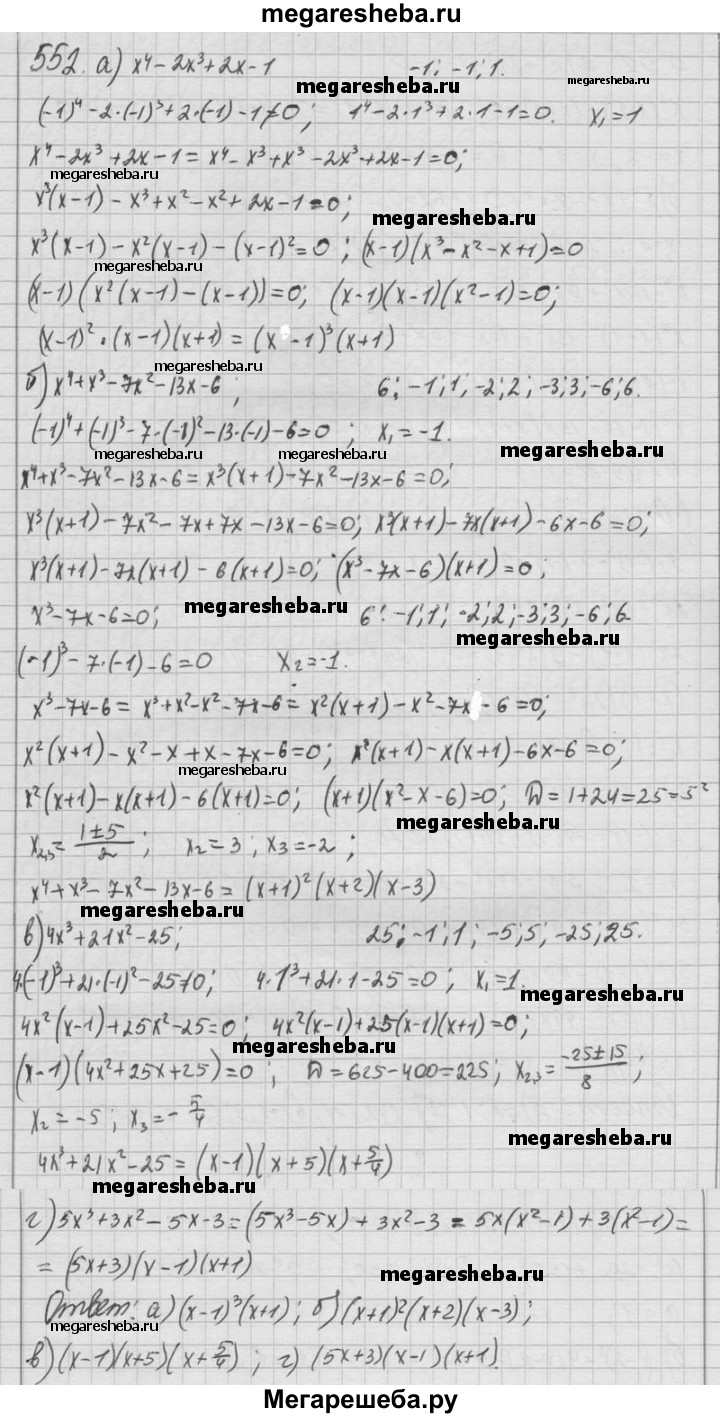 megaresheba.ru
552. а) x⁴-2x³+2x-1     -1: -1; 1.
megaresheba.ru
megaresheba.ru
(-1)⁴-2·(-1)³+2·(-1)-1≠0;     1⁴-2·1³+2·1-1=0.     x₁=1
x⁴-2x³+2x-1=x⁴-x³+x³-2x³+2x-1=0;
megaresheba.ru
x³(x-1)-x³+x²-x²+2x-1=0;
megaresheba.ru
x³(x-1)-x²(x-1)-(x-1)²=0; (x-1)(x³-x²-x+1)=0
megaresheba.ru
(x-1)(x²(x-1)-(x-1))=0; (x-1)(x-1)(x²-1)=0;
(x-1)²·(x-1)(x+1)=(x-1)³(x+1)
megaresheba.ru
б) x⁴+x³-7x²-13x-6;     6: -1; 1; -2; 2; -3; 3; -6; 6.
(-1)⁴+(-1)³-7·(-1)²-13·(-1)-6=0; x₁=-1.
megaresheba.ru
megaresheba.ru
megaresheba.ru
x⁴+x³-7x²-13x-6=x³(x+1)-7x²-13x-6=0;
x³(x+1)-7x²-7x+7x-13x-6=0; x³(x+1)-7x(x+1)-6x-6=0;
x³(x+1)-7x(x+1)-6(x+1)=0; (x³-7x-6)(x+1)=0;
x³-7x-6=0;     6: -1; 1; -2; 2; -3; 3; -6; 6
megaresheba.ru
megaresheba.ru
(-1)³-7·(-1)-6=0     x₂=-1.
x³-7x-6=x³+x²-x²-7x-6=x²(x+1)-x²-7x-6=0;
x²(x+1)-x²-x+x-7x-6=0; x²(x+1)-x(x+1)-6x-6=0;
megaresheba.ru
x²(x+1)-x(x+1)-6(x+1)=0; (x+1)(x²-x-6)=0; D=1+24=25=5²
megaresheba.ru
x₂,₃=(1±5)/2; x₂=3, x₃=-2;
x⁴+x³-7x²-13x-6=(x+1)²(x+2)(x-3)
megaresheba.ru
в) 4x³+21x²-25;     25: -1; 1; -5; 5; -25; 25.
4·(-1)³+21·(-1)²-25≠0; 4·1³+21·1-25=0; x₁=1.
megaresheba.ru
4x²(x-1)+25x²-25=0; 4x²(x-1)+25(x-1)(x+1)=0;
megaresheba.ru
(x-1)(4x²+25x+25)=0; D=625-400=225; x₂,₃=(-25±15)/8;
x₂=-5; x₃=-5/4
megaresheba.ru
4x³+21x²-25=(x-1)(x+5)(x+5/4)
megaresheba.ru
г) 5x³+3x²-5x-3=(5x³-5x)+3x²-3=5x(x²-1)+3(x²-1)=
=(5x+3)(x-1)(x+1)
megaresheba.ru
Ответ: а) (x-1)³(x+1); б) (x+1)²(x+2)(x-3);
megaresheba.ru
в) (x-1)(x+5)(x+5/4); г) (5x+3)(x-1)(x+1).
Мегарешеба.ру